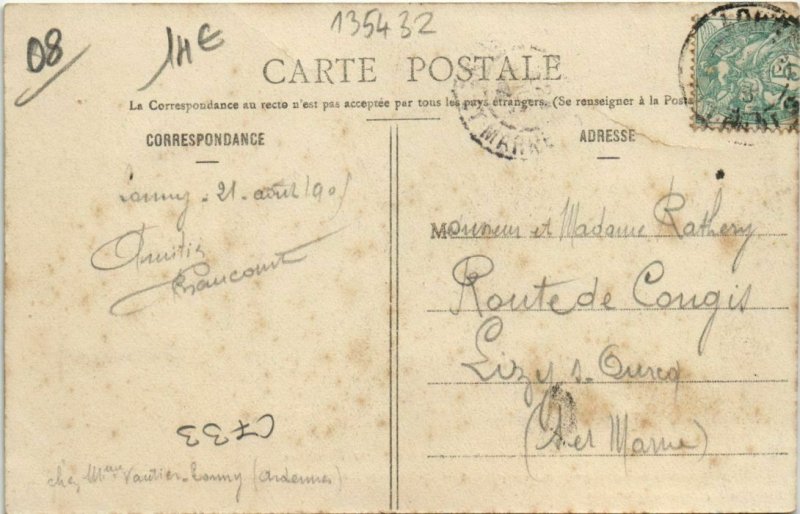 08
14€
135432
CARTE POSTALE
La Correspondance au recto n'est pas acceptée par tous les pays étrangers. (Se renseigner à la Poste
CORRESPONDANCE
Lonny. 21 août 190
Amitiés
CF33
chez Mme Vautier-Lonny (Ardennes)
ADRESSE
Monsieur et Madame Rathery
Route de Congis
Lizy s. Ourcq
(S et Marne)
MARNE